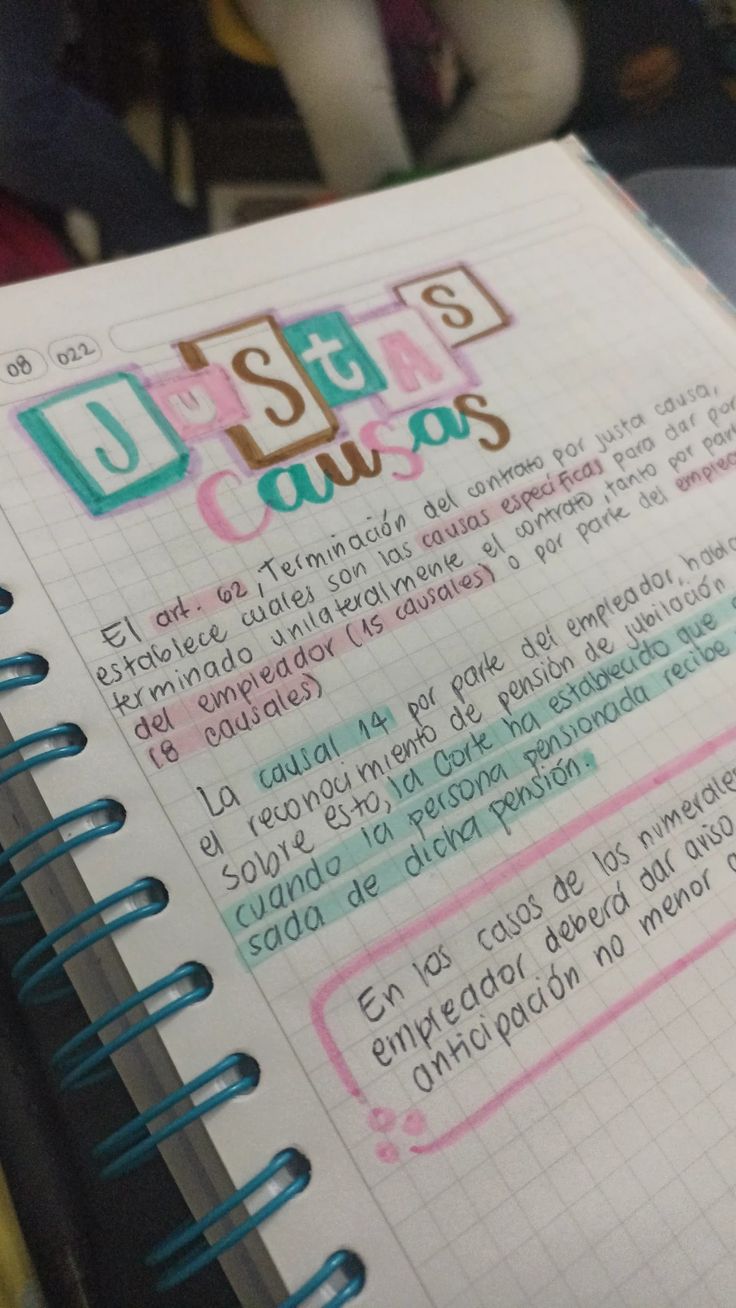 08 022
JUSTAS
Causas
El art. 62, Terminación del contrato por justa causa,
establece cuales son las causas específicas para dar por
terminado unilateralmente el contrato, tanto por
del empleador (15 causales) o por parte del
(8 causales)
La causal 14 por parte del empleador,
el reconocimiento de pensión de jubilación
sobre esto, la Corte ha establecido que
cuando la persona pensionada recibe
sada de dicha pensión.
En los casos de los
empleador deberá dar aviso
anticipación no menor